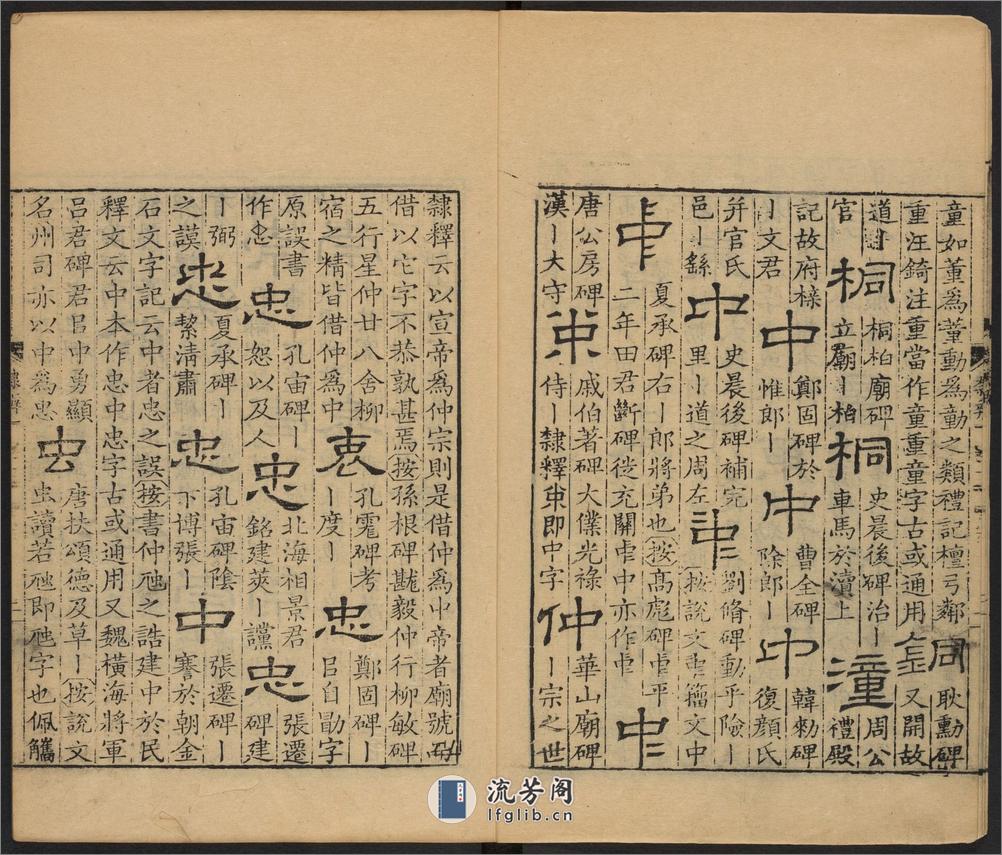 童如董爲蕫動爲動之類禮記檀弓鄰
重汪錡注重當作童重童字古或通用
同
耿勳碑
又開故
道銅官
桐
桐柏廟碑
立廟一柏
桐
史晨後碑治一
車馬於瀆上
潼
周公
禮殿
記故府椽
一文君
中
鄭固碑於
惟郎一
中
曹全碑
除郎一
中
韓勑碑
復顏氏
并官氏
邑一繇
中
史晨後碑補完
里一道之周左
劉脩碑動乎險一
按說文籒文中
夏承碑右一郎將弟也按高彪碑平
二年田君斷碑從充關中亦作
中
唐公房碑
漢一大守
戚伯著碑大僕光祿
侍一隸釋即中字
仲
華山廟碑
一宗之世
隸釋云以宣帝爲仲宗則是借仲爲中帝者廟號毋
借以它字不恭孰甚焉按孫根碑戡毅仲行柳敏碑
五行星仲廿八舍柳
宿之精皆借仲爲中
衷
孔霓碑考
一度一
忠
鄭固碑一
吕自勖字
原誤書
作忠
忠
孔宙碑一
恕以及人
忠
北海相景君
銘建英一讜
忠
張遷
碑建
一弼
之謨
忠
夏承碑一
絜清肅
忠
孔宙碑陰
下博張一
中
張遷碑一
謇於朝金
石文字記云中者忠之誤按書仲虺之誥建中於民
釋文云中本作忠中忠字古或通用又魏橫海將軍
吕君碑君吕中勇顯
名州司亦以中爲忠
唐扶頌德及草一按說文
虫讀若虺即虺字也佩觿
流芳阁
lfglib.cn